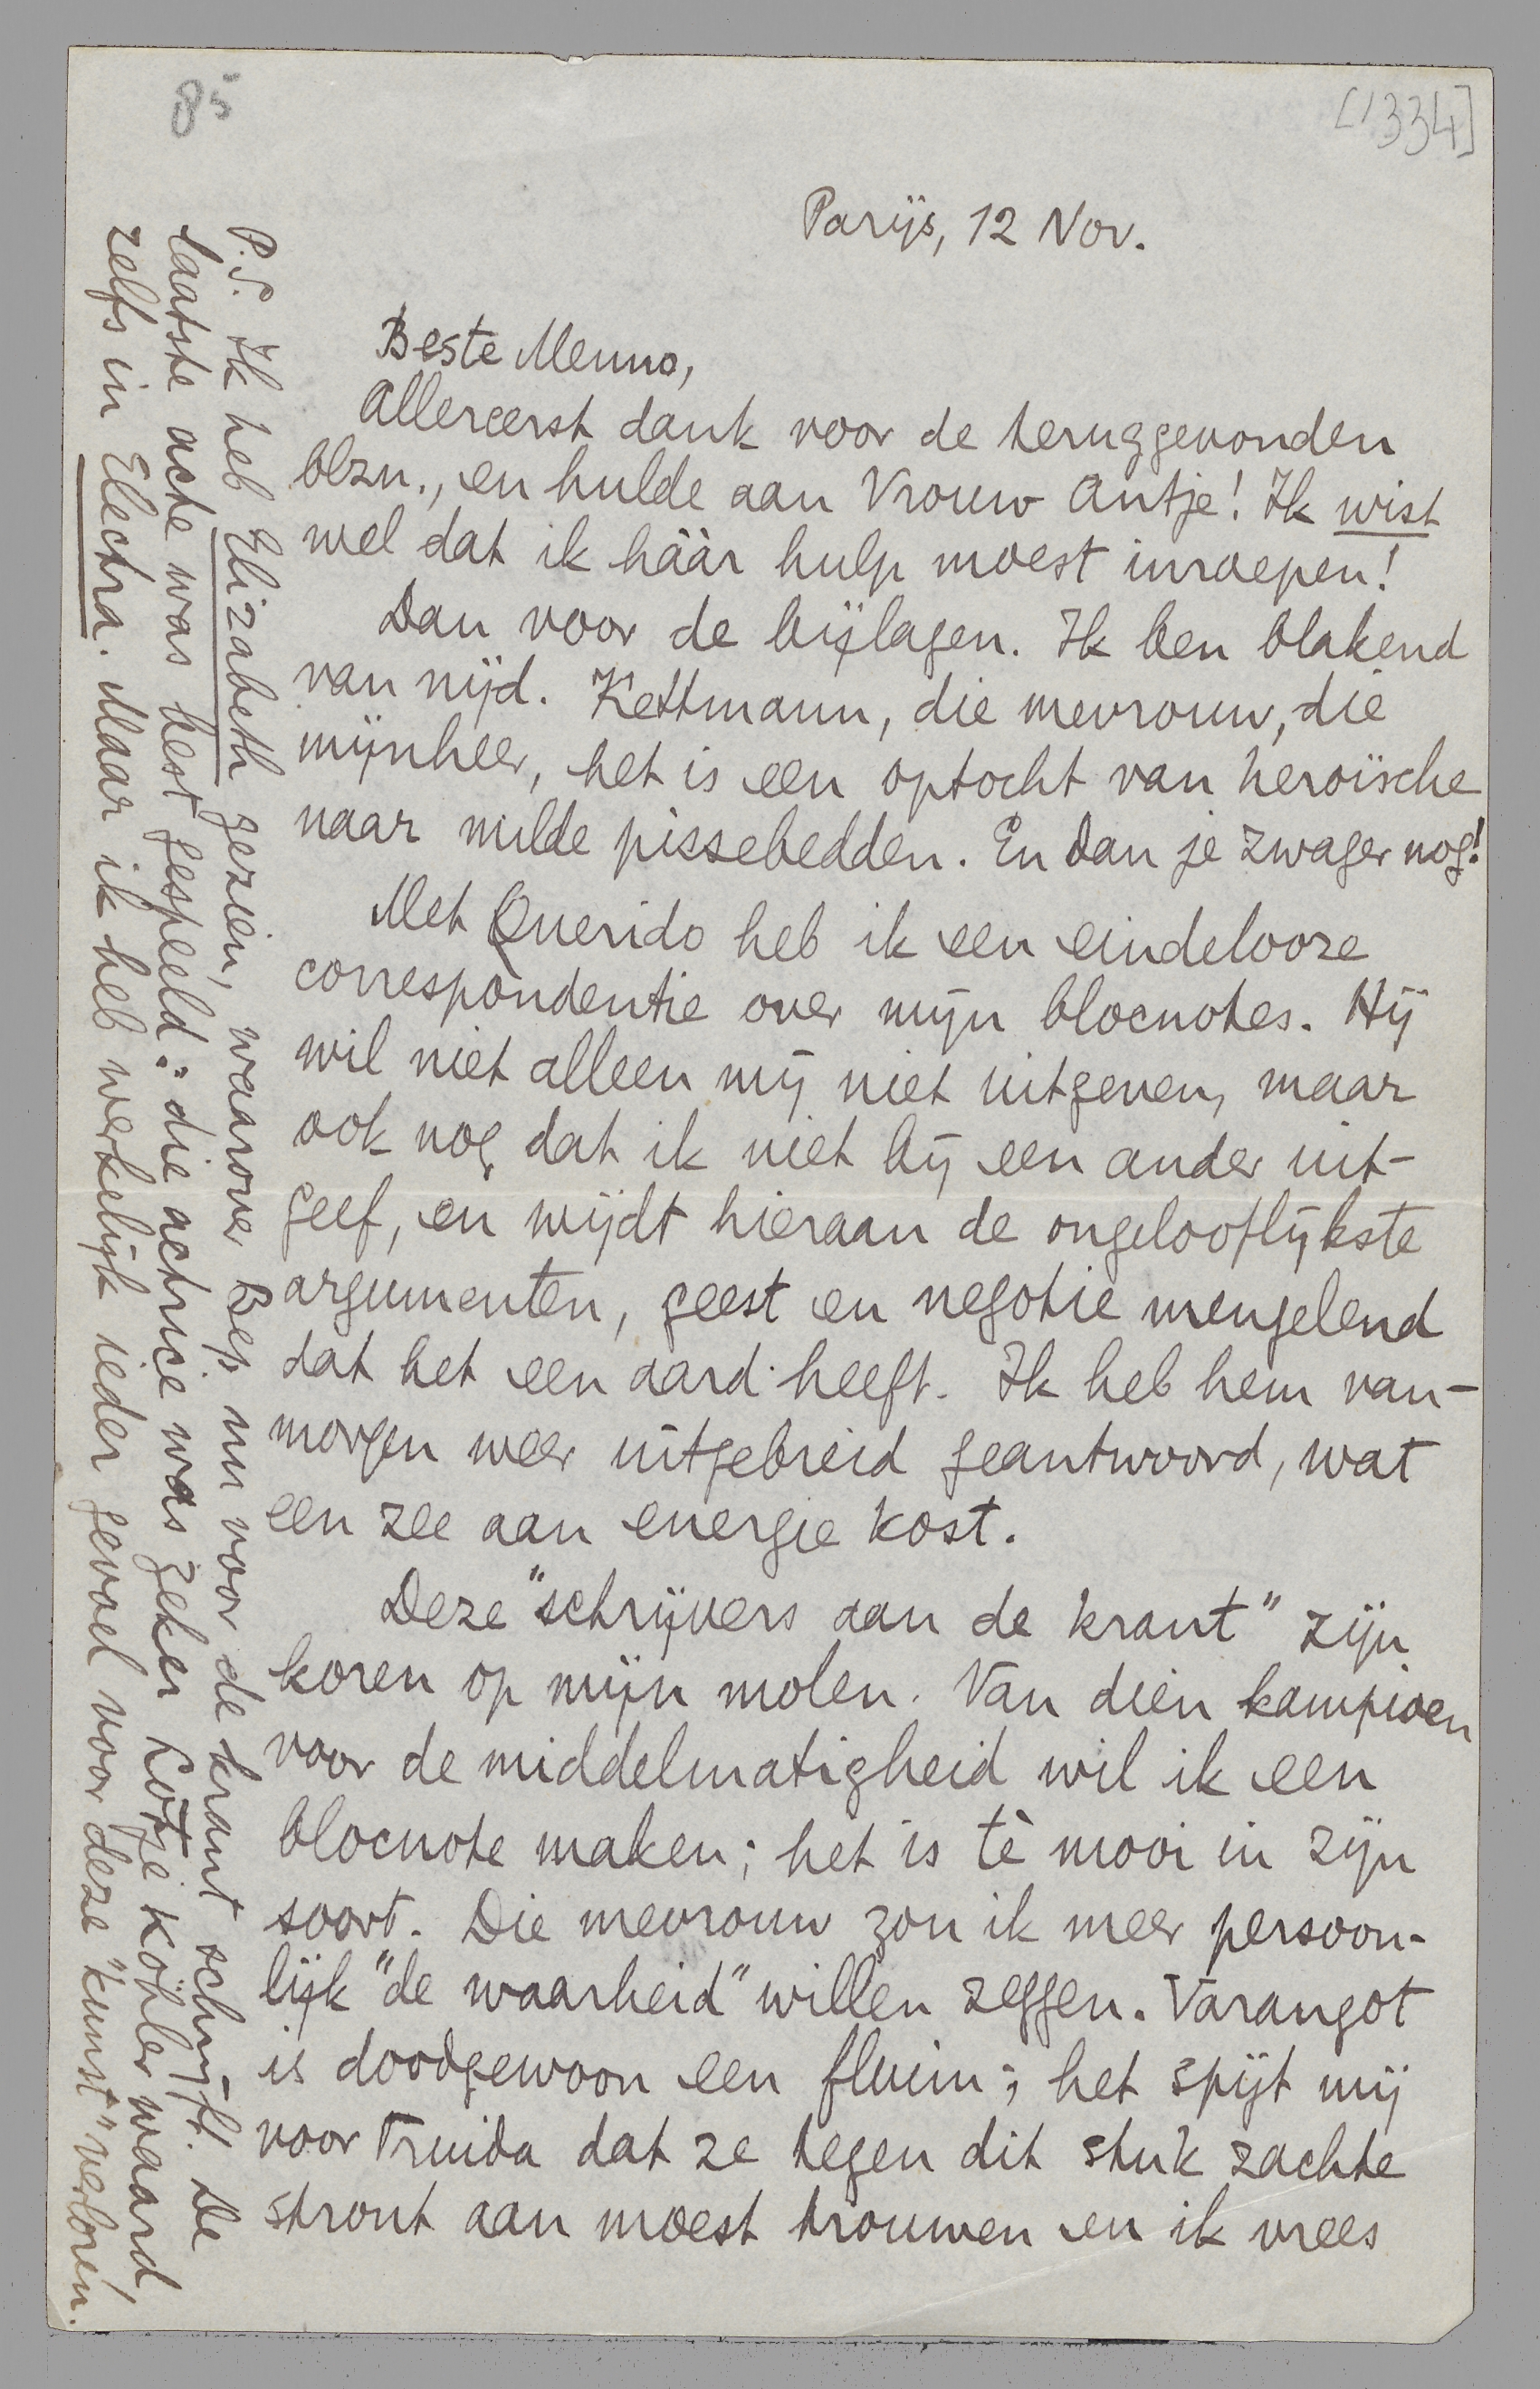 85
[1334]
Parijs, 12 Nov.
Beste Menno,
Allereerst dank voor de teruggevonden
blzn., en hulde aan Vrouw Antje! Ik wist
wel dat ik háár hulp moest inroepen!
Dan voor de bijlagen. Ik ben blakend
van nijd. Kettmann, die mevrouw, die
mijnheer, het is een optocht van heroïsche
naar milde pissebedden. En dan je zwager nog!
Met Querido heb ik een eindelooze
correspondentie over mijn blocnotes. Hij
wil niet alleen mij niet uitgeven, maar
ook nog dat ik niet bij een ander uit-
geef, en wijdt hieraan de ongelooflijkste
argumenten, geest en negotie mengelend
dat het een aard heeft. Ik heb hem van-
morgen weer uitgebreid geantwoord, wat
een zee aan energie kost.
Deze "schrijvers aan de krant" zijn
koren op mijn molen. Van dien kampioen
voor de middelmatigheid wil ik een
blocnote maken; het is tè mooi in zijn
soort. Die mevrouw zou ik meer persoon-
lijk "de waarheid" willen zeggen. Varangot
is doodgewoon een fluim; het spijt mij
voor Truida dat ze tegen dit stuk zachte
stront aan moest trouwen en ik vrees
P.S. Ik heb Elizabeth gezien, waarover Bep nu voor de krant schrijft. De
laatste acte was best gespeeld: die actrice was zeker Lotje Köhler waard,
zelfs in Electra. Maar ik heb werkelijk ieder gevoel voor deze "kunst" verloren.